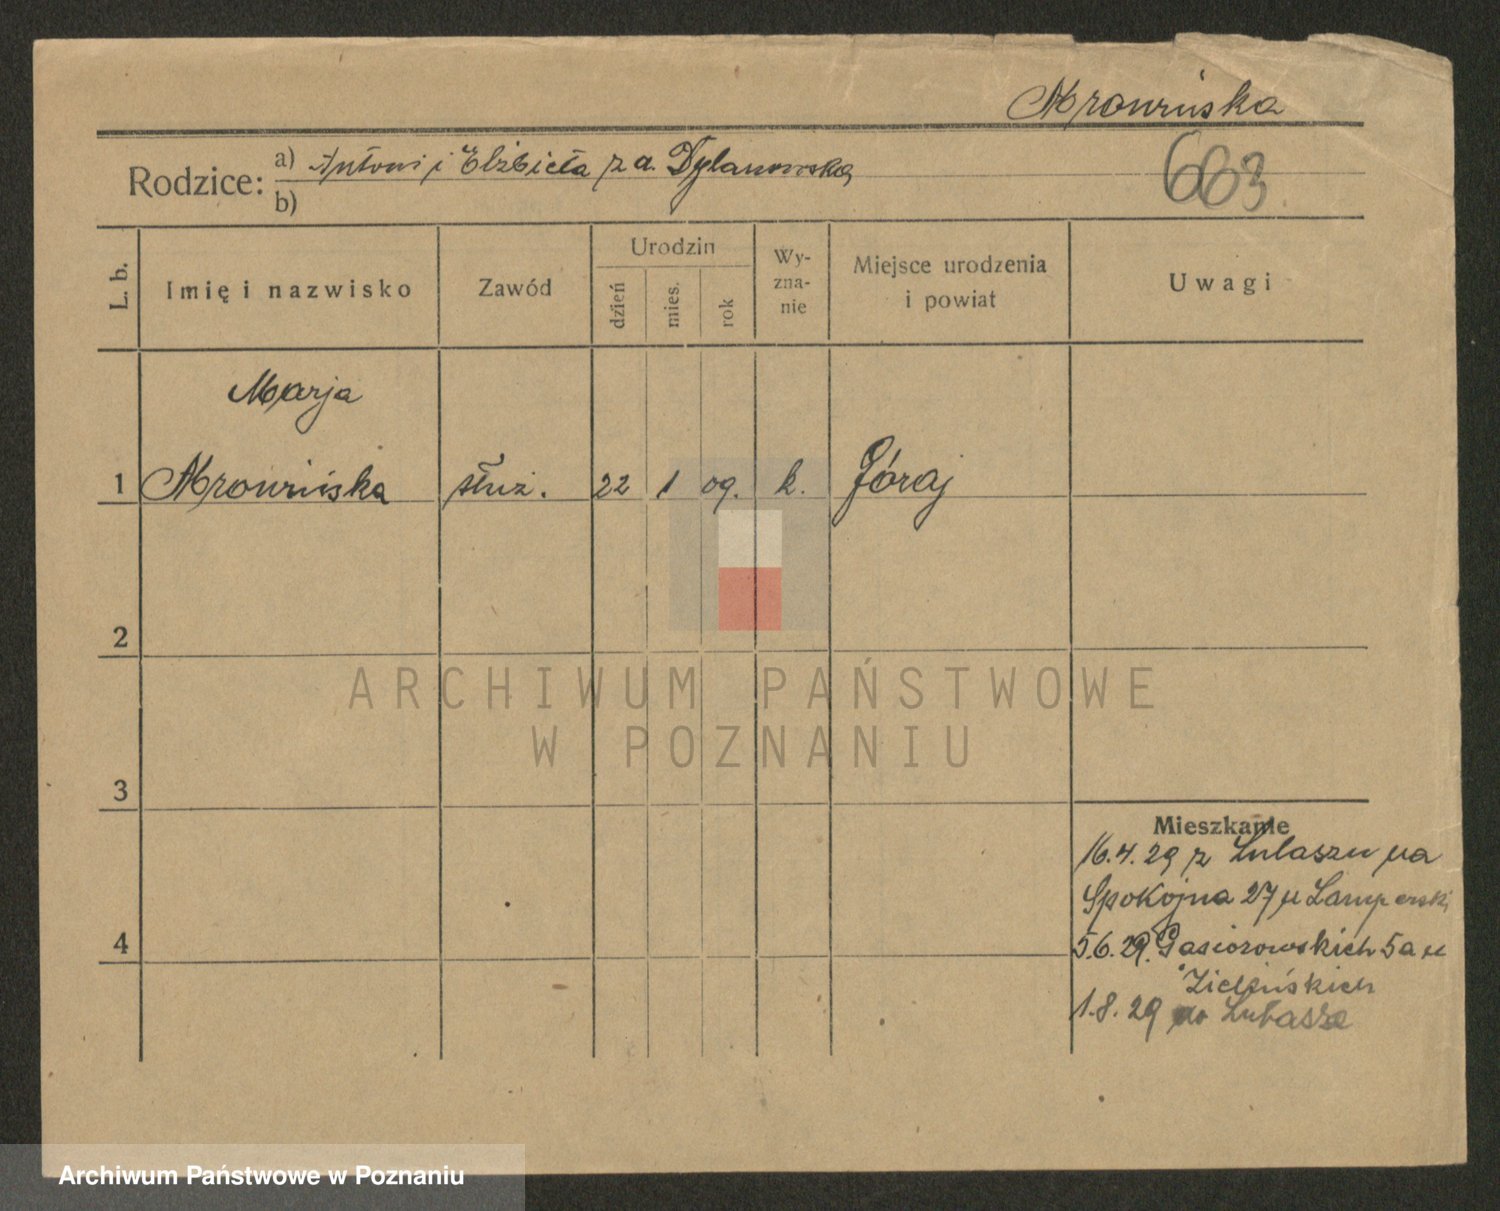 Mrowińska
Rodzice: a) Antoni i Elżbieta z d. Dylanowska
b)
663
L. b.
Imię i nazwisko
Zawód
Urodzin
dzień
mies.
rok
Wy-
zna-
nie
Miejsce urodzenia
i powiat
Uwagi
Marja
1 Mrowińska służ. 22 1 09. k. Góraj
2
ARCHIWUM PAŃSTWOWE
W POZNANIU
3
Mieszkanie
16.4.29 z Lubaszu na
Spokojna 27 u Lamperski
4
5.6.29. Gasiorowskich 5a u
Zielińskich
1.8.29 do Lubasze
Archiwum Państwowe w Poznaniu